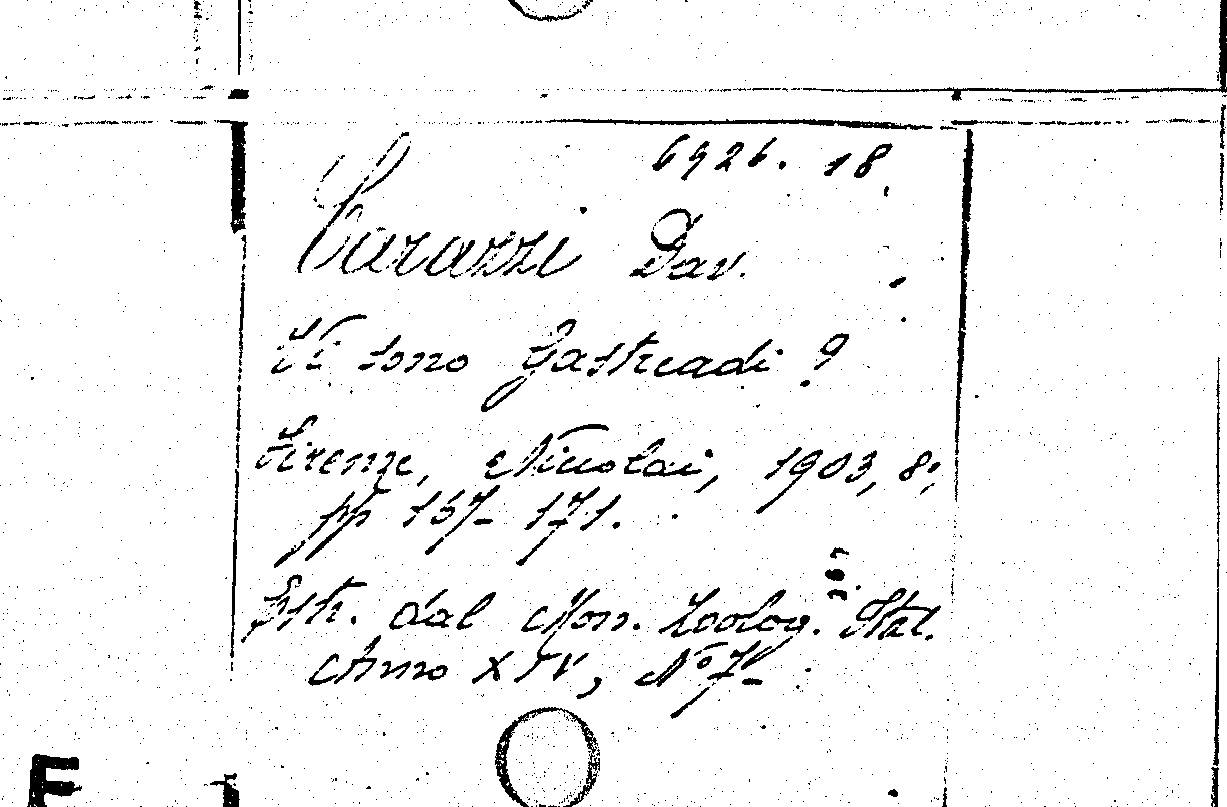 6926. 18
Carazzi Dav.
Vi sono Gastreadi?
Firenze, Niccolai, 1903, 8°,
pp 157-171.
Estr. dal Mon. Zoolog. Ital.
Anno XIV, N° 7-
E